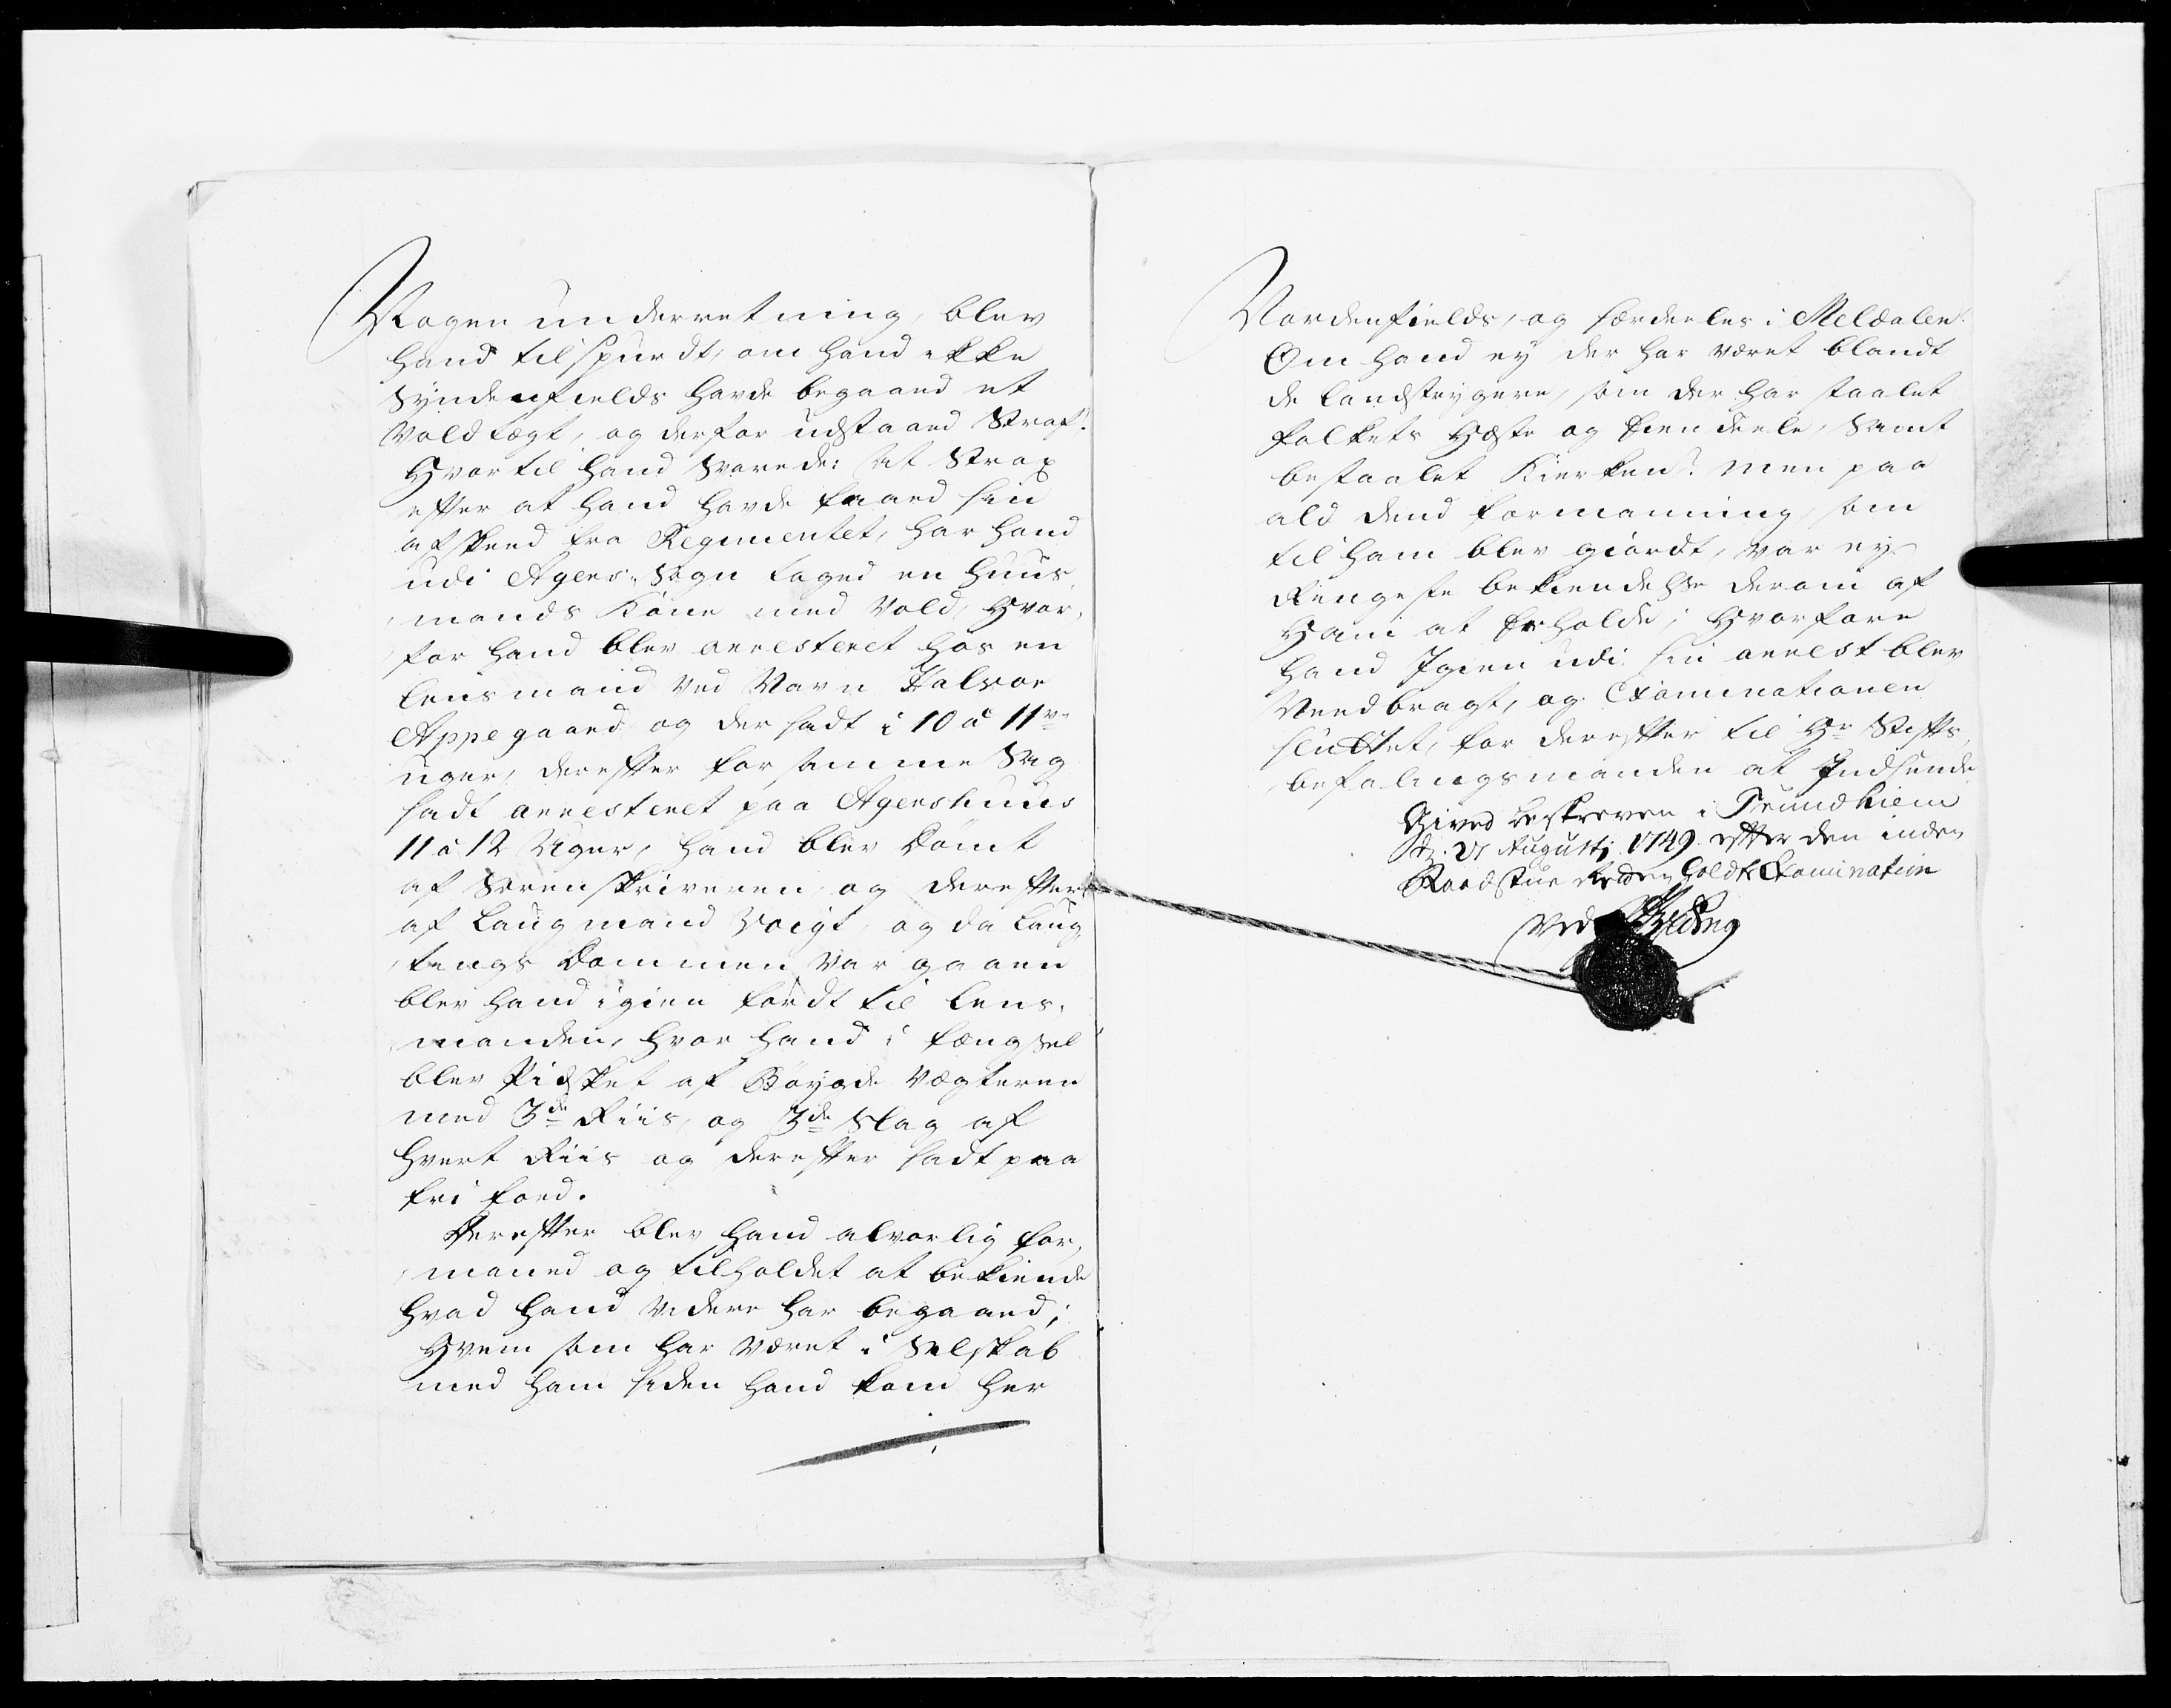 Nogen underretning, blev
hand tilspurdt, om hand ikke
Syndenfields hafde begaaed et
Voldtægt, og derfor udstaaed Straf?
Hvortil hand svarede: at strax
efter at hand hafde faaed sin
afskeed fra Regimentet, har hand
udi Agers Sogn taged en Huus
mands Kone med Vold, hvor,
for hand blev arresteret hos en
Lensmand ved Navn Halvor
Appegaard og der sadt i 10 á 11ve
uger, derefter for samme Sag
sadt arresteret paa Agershuus
11 á 12 Uger, hand blev dömt
af Sorenskriveren og derefter
af Laugmand Voigt, og da Laug
tings Dommen var gaaen
blev hand igien fördt til Lens,
manden, hvor hand i fængsel
blev Pidsket af Böyde Vægteren
med 3de Riis, og 3de Slag af
hvert Riis og derefter sadt paa
fri foed.
Derefter blev hand alvorlig for,
maned og tilholdet at bekiende
hvad hand videre har begaaed;
Hvem som har været i Selskab
med ham siden hand kom her
Nordenfields, og særdeeles i Meldalen.
Om hand ey der har været blandt
de Landstrygere, som der har staalet
folkets Heste og Eiendeele, samt
bestaalet Kierken? men paa
ald dend formanning som
til ham blev giordt, var ey
Ringeste bekiendelse derom af
Ham at erholde; Hvorfore
hand Igien udi sin arrest blev
Needbragt, og Examinationen
sluttet, for derefter til Hr Stifts
befalingsmanden at Indsende
Gived beskreven i Trundhiem
d. 21 Augustj 1749 efter den inden
Raadstue Retten holdte Examination
Ved